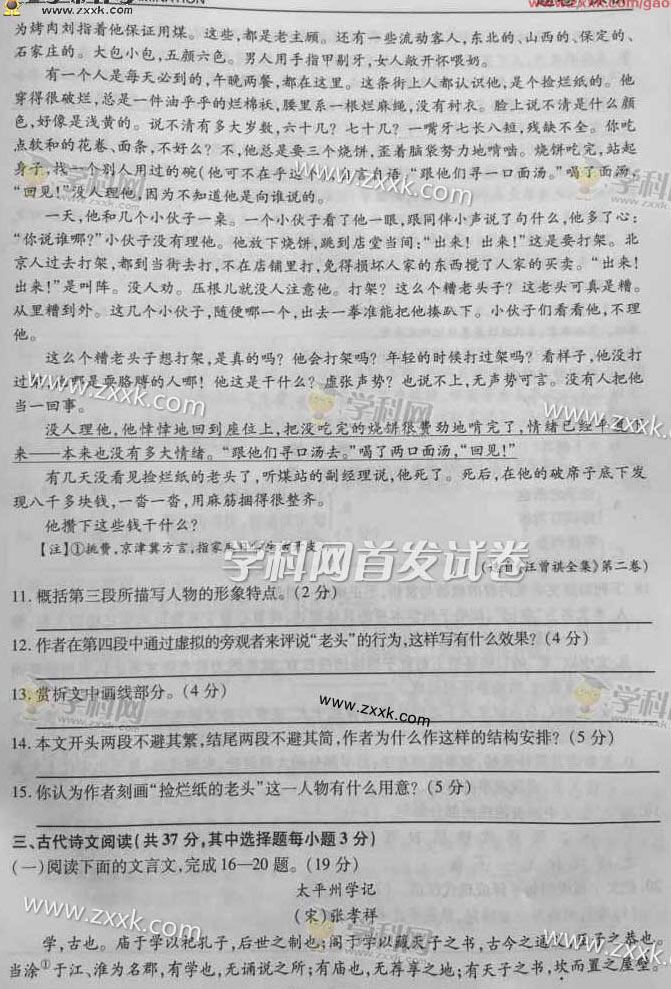 MINATION
www.zxxk.com/gao
为烤肉刘指着他保证用煤。这些,都是老主顾。还有一些流动客人,东北的、山西的、保定的、
石家庄的。大包小包,五颜六色。男人用手指甲剔牙,女人敞开怀喂奶。
有一个人是每天必到的,午晚两餐,都在这里。这条街上人都认识他,是个捡烂纸的。他
穿得很破烂,总是一件油乎乎的烂棉袄,腰里系一根烂麻绳,没有衬衣。脸上说不清是什么颜
色,好像是浅黄的。说不清有多大岁数,六十几?七十几?一嘴牙七长八短,残缺不全。你吃
点软和的花卷、面条,不好么?不,他总是要三个烧饼,歪着脑袋努力地啃啮。烧饼吃完,站起
身子,找一个别人用过的碗(他可不在乎这个),自言自语,“跟他们寻一口面汤。”喝了面汤,
“回见!”没人理他,因为不知道他是向谁说的。
一天,他和几个小伙子一桌。一个小伙子看了他一眼,跟同伴小声说了句什么,他多了心:
“你说谁哪?”小伙子没有理他。他放下烧饼,跳到店堂当间:“出来!出来!”这是要打架。北
京人过去打架,都到当街去打,不在店铺里打,免得损坏人家的东西搅了人家的买卖。“出来!
出来!”是叫阵。没人劝。压根儿就没人注意他。打架?这么个糟老头子?这老头可真是糟。
从里糟到外。这几个小伙子,随便哪一个,出去一拳准能把他揍趴下。小伙子们看看他,不理
他。
这么个糟老头子想打架,是真的吗?他会打架吗?年轻的时候打过架吗?看样子,他没打
过架,他哪是耍胳膊的人哪!他这是干什么?虚张声势?也说不上,无声势可言。没有人把他
当一回事。
没人理他,他悻悻地回到座位上,把没吃完的烧饼很费劲地啃完了,情绪已经平复下
来——本来也没有多大情绪。“跟他们寻口汤去。”喝了两口面汤,“回见!”
有几天没看见捡烂纸的老头了,听煤站的副经理说,他死了。死后,在他的破席子底下发
现八千多块钱,一沓一沓,用麻筋捆得很整齐。
他攒下这些钱干什么?
【注】①挑费,京津冀方言,指家庭日常生活开支
(选自《汪曾祺全集》第二卷)
学科网首发试卷
11.概括第三段所描写人物的形象特点。(2分)
12.作者在第四段中通过虚拟的旁观者来评说“老头”的行为,这样写有什么效果?(4分)
13.赏析文中画线部分。(4分)
14.本文开头两段不避其繁,结尾两段不避其简,作者为什么作这样的结构安排?(5分)
15.你认为作者刻画“捡烂纸的老头”这一人物有什么用意?(5分)
三、古代诗文阅读(共37分,其中选择题每小题3分)
(一)阅读下面的文言文,完成16—20题。(19分)
太平州学记
(宋)张孝祥
学,古也。庙于学以祀孔子,后世之制也;阁于学以藏天子之书,古今之通 臣子之恭也。
当涂①于江、淮为名郡,有学也,无诵说之所;有庙也,无荐享之地;有天子之书,坎而置之屋壁。
学科网
www.zxxk.com